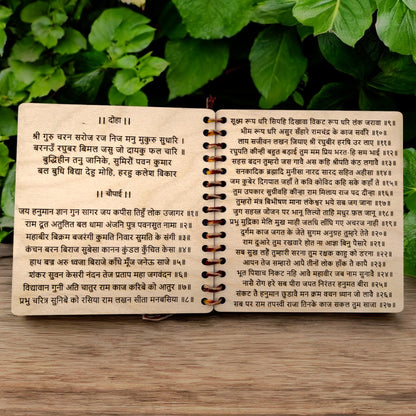 ।। दोहा ।।
श्री गुरु चरन सरोज रज निज मनु मुकुरु सुधारि ।
बरनउँ रघुबर बिमल जसु जो दायकु फल चारि ॥
बुद्धिहीन तनु जानिके, सुमिरौं पवन कुमार
बल बुधि विद्या देहु मोहि, हरहु कलेश बिकार
।। चौपाई ।।
जय हनुमान ज्ञान गुन सागर जय कपीस तिहुँ लोक उजागर ॥१॥
राम दूत अतुलित बल धामा अंजनि पुत्र पवनसुत नामा ॥२॥
महाबीर बिक्रम बजरंगी कुमति निवार सुमति के संगी ॥३॥
कंचन बरन बिराज सुबेसा कानन कुंडल कुँचित केसा ॥४॥
हाथ बज्र अरु ध्वजा बिराजे काँधे मूँज जनेऊ साजे ॥५॥
शंकर सुवन केसरी नंदन तेज प्रताप महा जगवंदन ॥६॥
विद्यावान गुनी अति चातुर राम काज करिबे को आतुर ॥७॥
प्रभु चरित्र सुनिबे को रसिया राम लखन सीता मनबसिया ॥८॥
सूक्ष्म रूप धरि सियहि दिखावा विकट रूप धरि लंक जरावा ॥९॥
भीम रूप धरि असुर सँहारे रामचंद्र के काज सवाँरे ॥१०॥
लाय सजीवन लखन जियाए श्री रघुबीर हरषि उर लाए ॥११॥
रघुपति कीन्ही बहुत बड़ाई तुम मम प्रिय भरत हि सम भाई ॥१२॥
सहस बदन तुम्हरो जस गावै अस कहि श्रीपति कंठ लगावै ॥१३॥
सनकादिक ब्रह्मादि मुनीसा नारद सारद सहित अहीसा ॥१४॥
जम कुबेर दिगपाल जहाँ ते कवि कोविद कहि सके कहाँ ते ॥१५॥
तुम उपकार सुग्रीवहि कीन्हा राम मिलाय राज पद दीन्हा ॥१६॥
तुम्हरो मंत्र बिभीषण माना लंकेश्वर भये सब जग जाना ॥१७॥
जुग सहस्र जोजन पर भानू लिल्यो ताहि मधुर फल जानू ॥१८॥
प्रभु मुद्रिका मेलि मुख माही जलधि लाँघि गए अचरज नाही ॥१९॥
दुर्गम काज जगत के जेते सुगम अनुग्रह तुम्हरे तेते ॥२०॥
राम दुआरे तुम रखवारे होत ना आज्ञा बिनु पैसारे ॥२१॥
सब सुख लहैं तुम्हारी सरना तुम रक्षक काहू को डरना ॥२२॥
आपन तेज सम्हारो आपै तीनों लोक हाँक तै काँपै ॥२३॥
भूत पिशाच निकट नहि आवे महावीर जब नाम सुनावै ॥२४॥
नासै रोग हरे सब पीरा जपत निरंतर हनुमत बीरा ॥२५॥
संकट तै हनुमान छुडावै मन क्रम वचन ध्यान जो लावै ॥२६॥
सब पर राम तपस्वी राजा तिनके काज सकल तुम साजा ॥२७॥